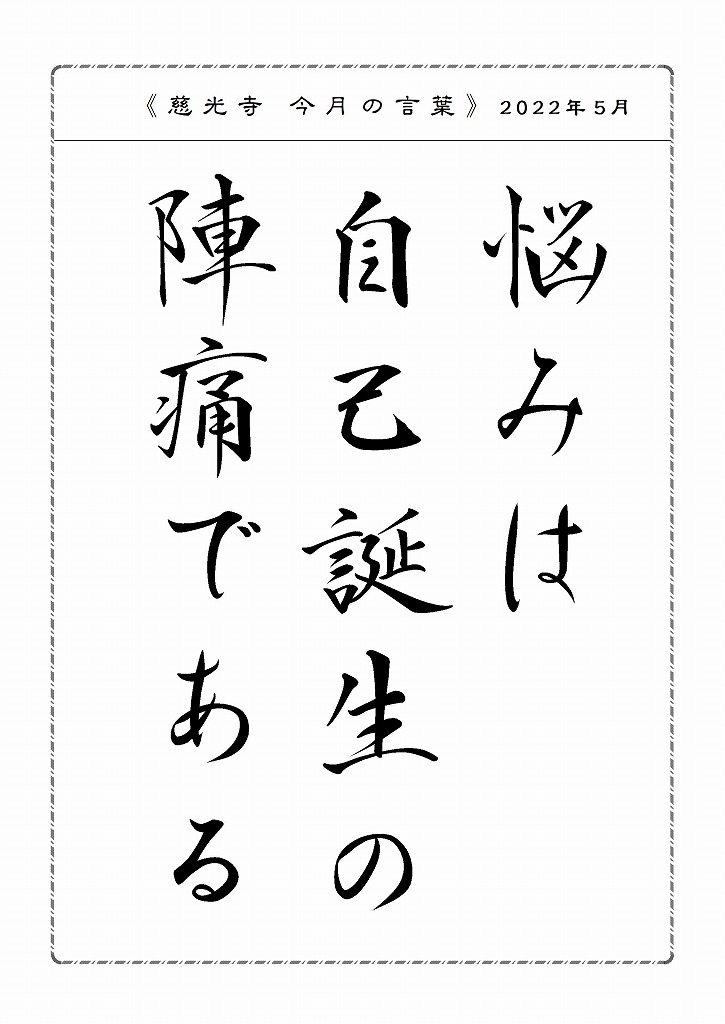 《慈光寺 今月の言葉》 2022年5月
悩みは
自己誕生の
陣痛である